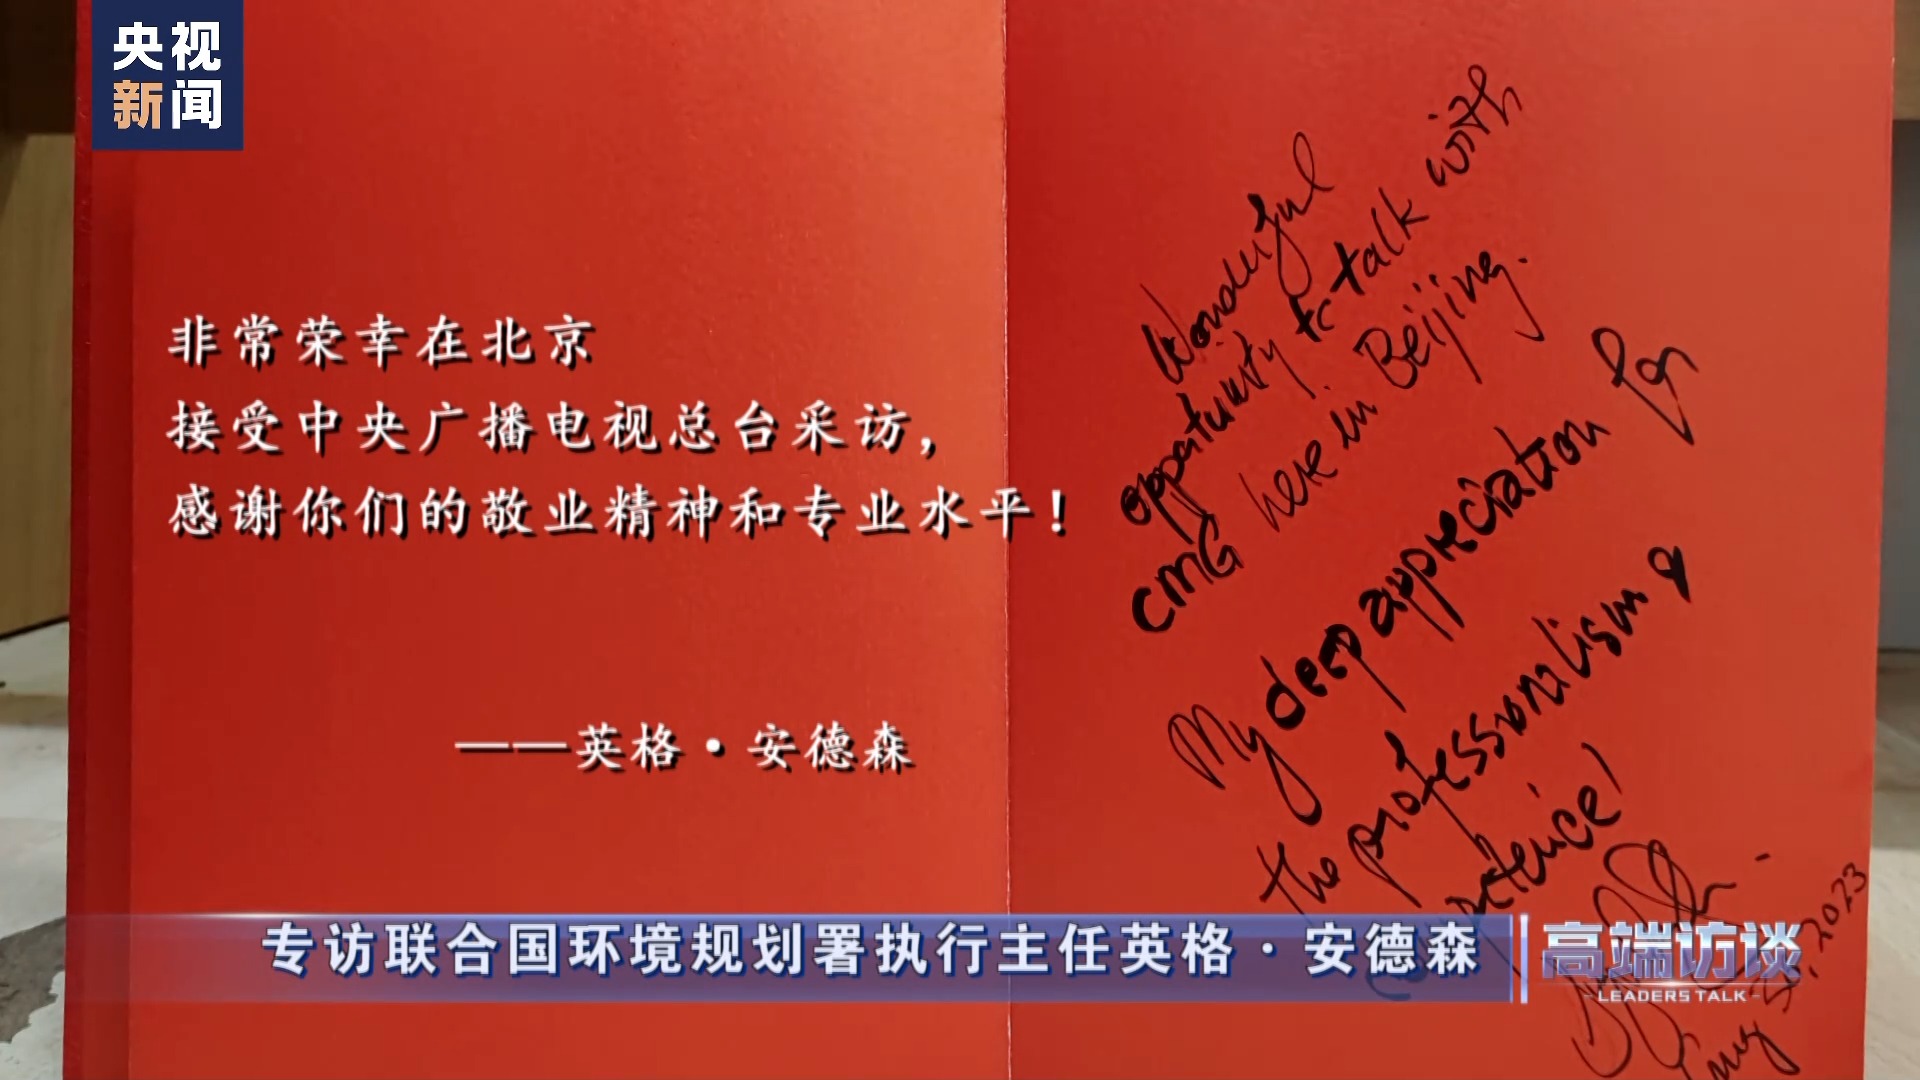 央视
新闻
非常荣幸在北京
接受中央广播电视总台采访，
感谢你们的敬业精神和专业水平！
——英格·安德森
Wonderful
opportunity to talk with
CMG here in Beijing.
My deep appreciation for
the professionalism &
专访联合国环境规划署执行主任英格·安德森
高端访谈
LEADERS TALK
2023